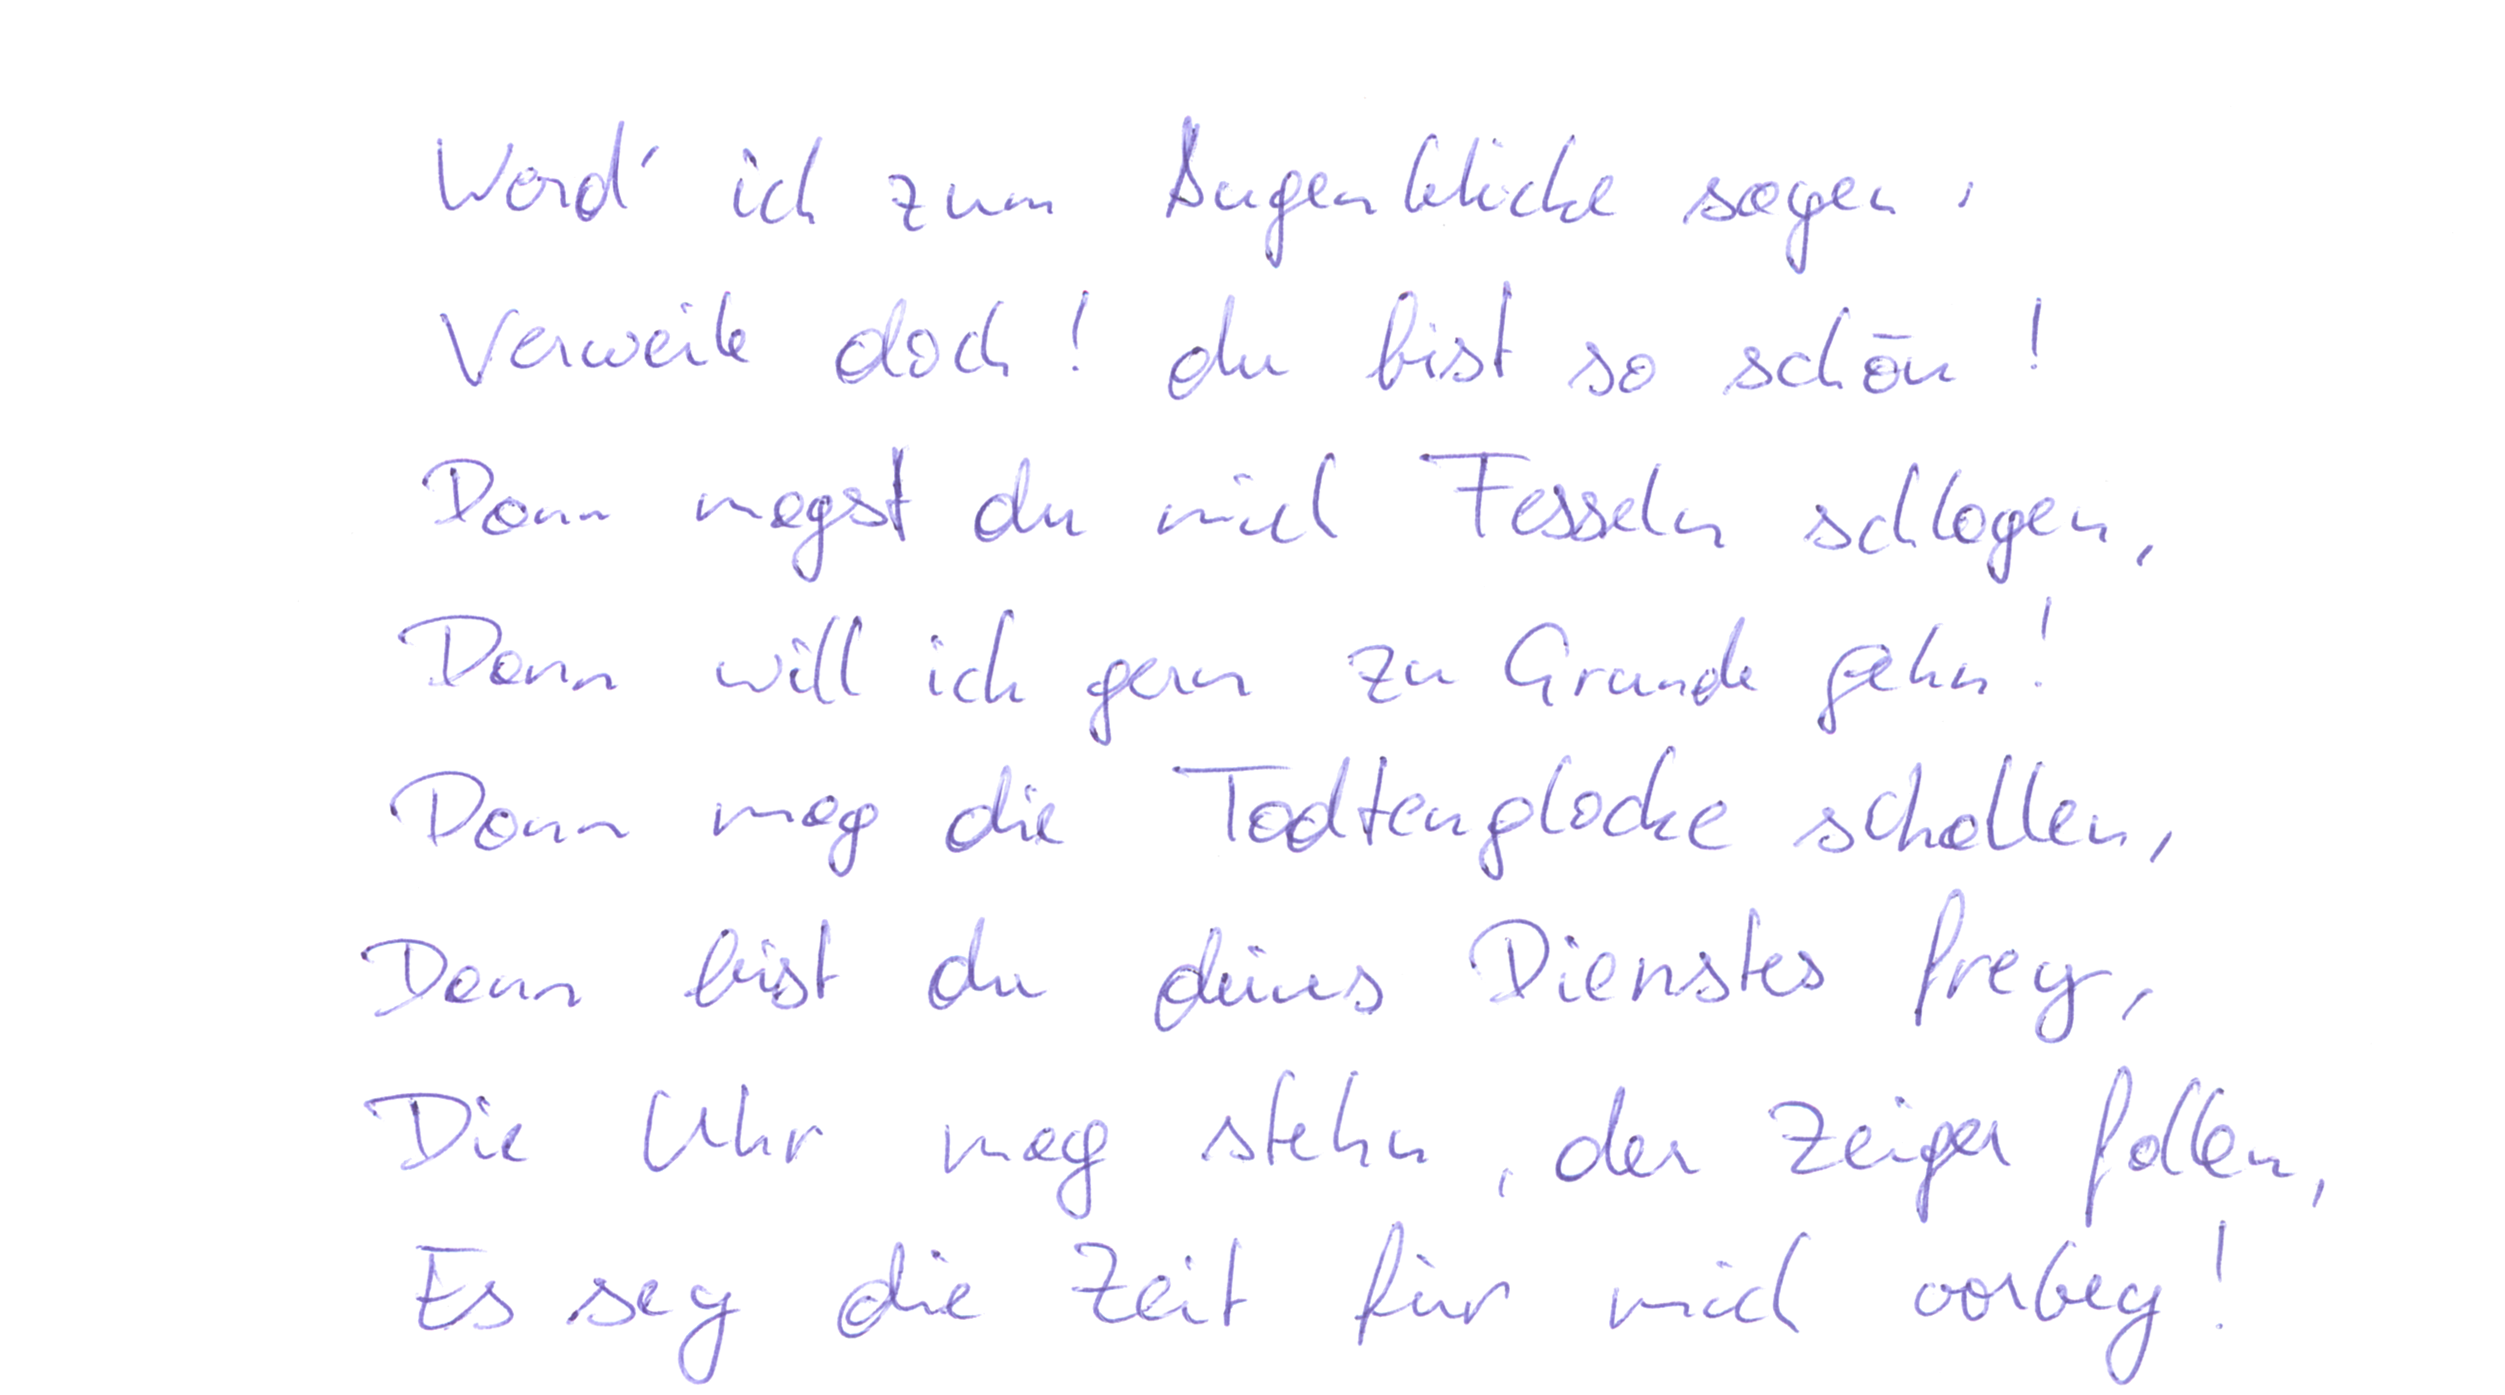 Werd' ich zum Augenblicke sagen:
Verweile doch! du bist so schön!
Dann magst du mich Fesseln schlagen,
Dann will ich gern zu Grunde gehn!
Dann mag die Todtenglocke schallen,
Dann bist du deines Dienstes frey,
Die Uhr mag stehn, der Zeiger fallen,
Es sey die Zeit für mich vorbey!